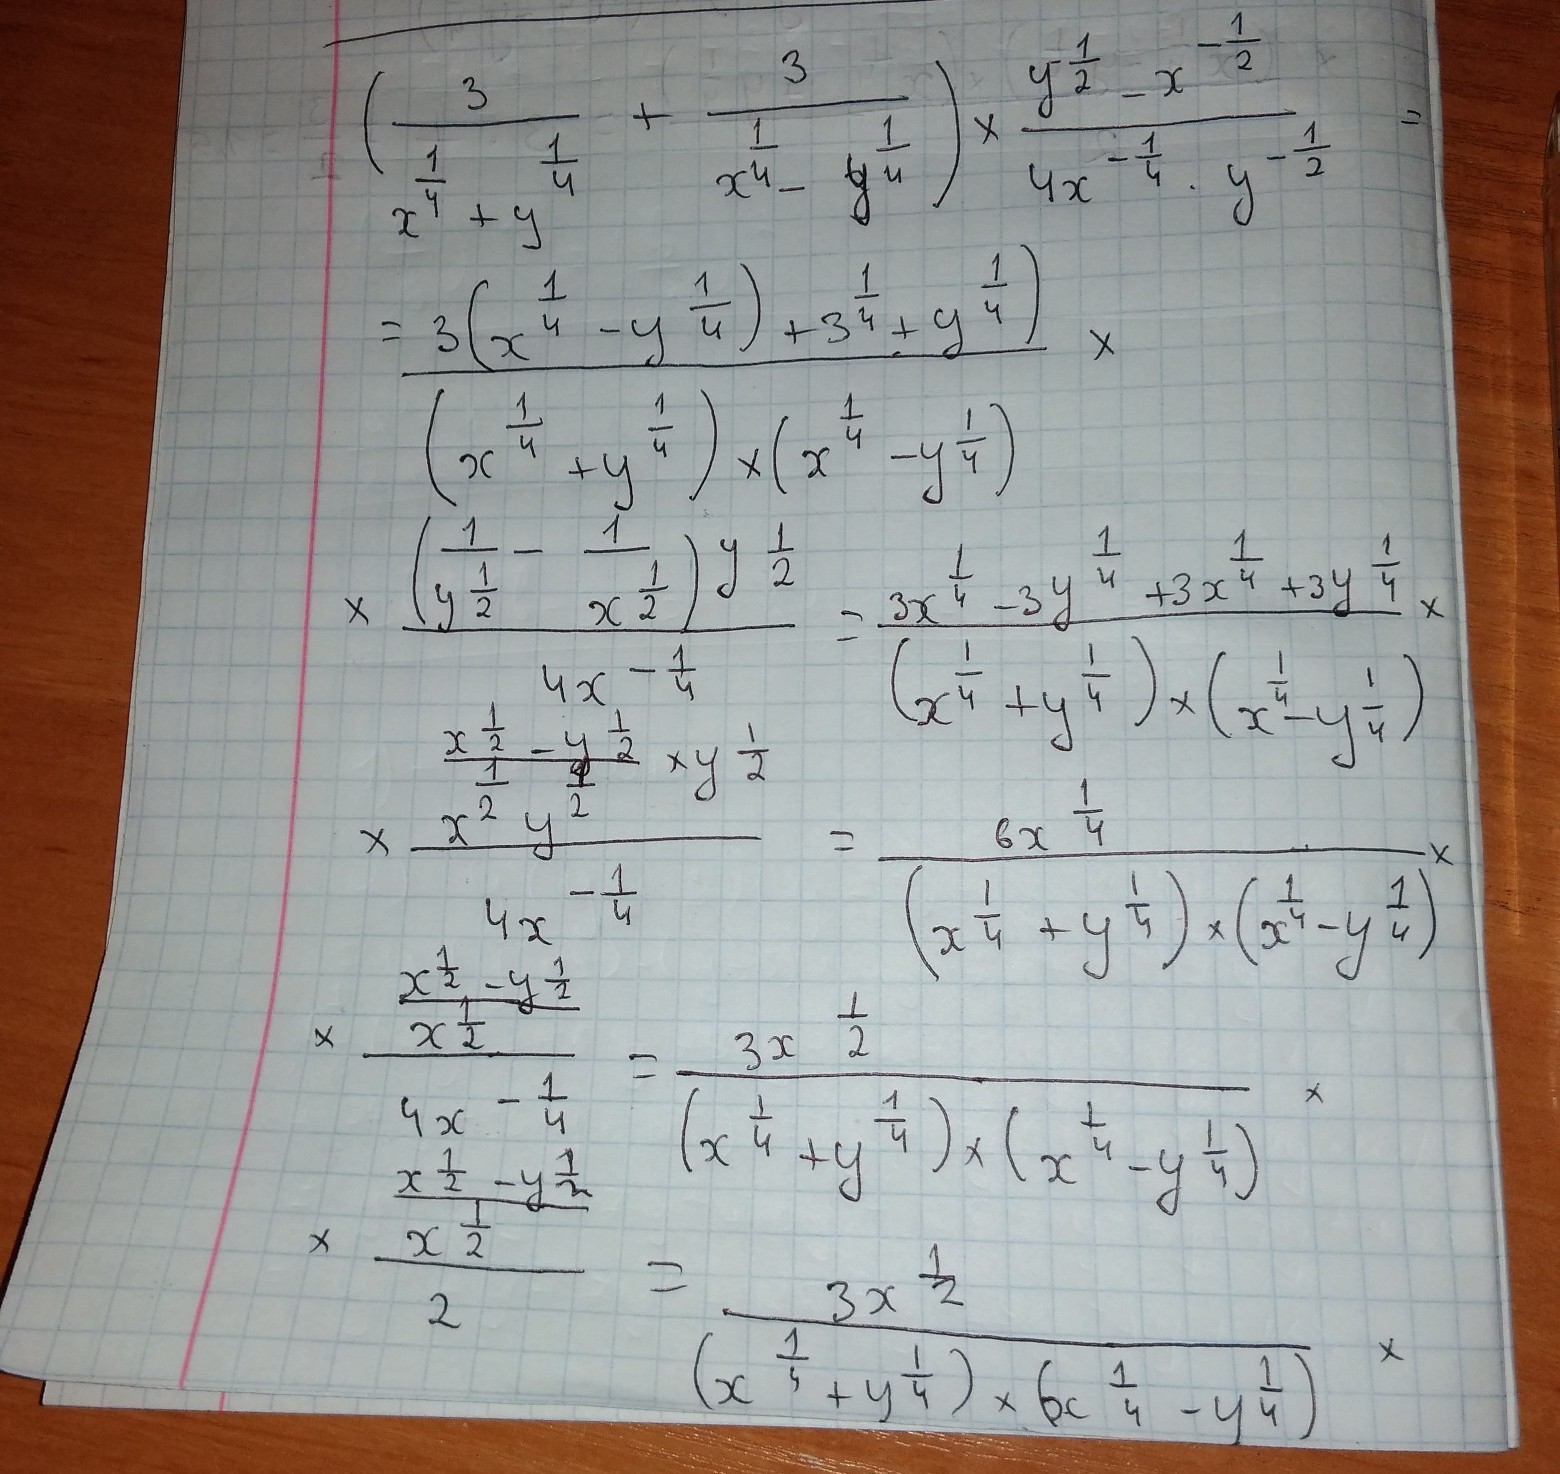 (3/(x^(1/4) + y^(1/4)) + 3/(x^(1/4) - y^(1/4))) × (y^(1/2) - x^(-1/2))/(4x^(-1/4) · y^(-1/2)) =
= (3(x^(1/4) - y^(1/4)) + 3^(1/4) + y^(1/4)))/((x^(1/4) + y^(1/4)) × (x^(1/4) - y^(1/4))) ×
× ((1/y^(1/2) - 1/x^(1/2)) y^(1/2))/(4x^(-1/4)) = (3x^(1/4) - 3y^(1/4) + 3x^(1/4) + 3y^(1/4))/((x^(1/4) + y^(1/4)) × (x^(1/4) - y^(1/4))) ×
× ((x^(1/2) - y^(1/2))/(x^(1/2) y^(1/2)) × y^(1/2))/(4x^(-1/4)) = (6x^(1/4))/((x^(1/4) + y^(1/4)) × (x^(1/4) - y^(1/4))) ×
× ((x^(1/2) - y^(1/2))/(x^(1/2)))/(4x^(-1/4)) = (3x^(1/2))/((x^(1/4) + y^(1/4)) × (x^(1/4) - y^(1/4))) ×
× ((x^(1/2) - y^(1/2))/(x^(1/2)))/2 = (3x^(1/2))/((x^(1/4) + y^(1/4)) × (x^(1/4) - y^(1/4))) ×